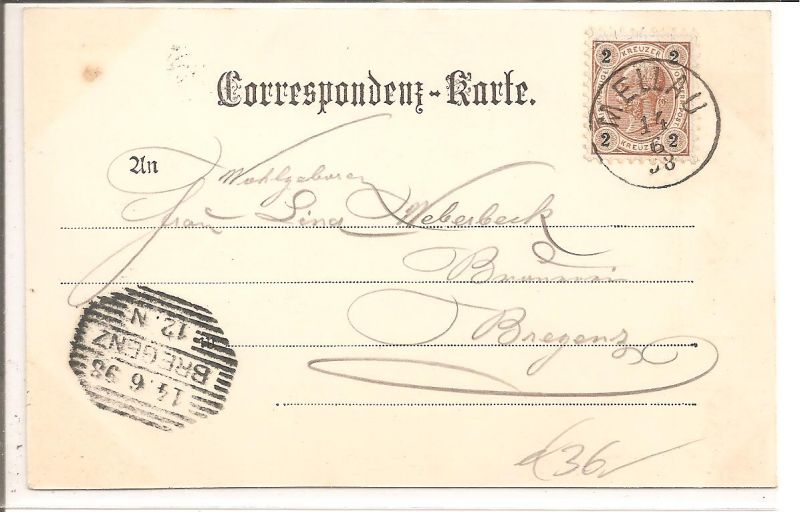 Correspondenz-Karte.
2 KREUZER 2
2 KREUZER 2
MELLAU
14
6
98
An
Wohlgeboren
Frau Lina Weberbeck
Bregenz
12. N
BREGENZ
14. 6 98
36